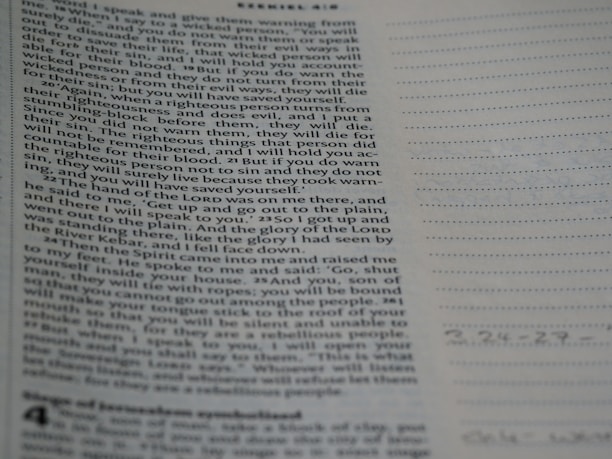 EZEKIEL 4:8
word I speak and give them warning from
me. 18 When I say to a wicked person, "You will
surely die," and you do not warn them or speak
out to dissuade them from their evil ways in
order to save their life, that wicked person will
die for b their sin, and I will hold you account-
able for their blood. 19 But if you do warn the
wicked person and they do not turn from their
wickedness or from their evil ways, they will die
for their sin; but you will have saved yourself.
20 'Again, when a righteous person turns from
their righteousness and does evil, and I put a
stumbling-block before them, they will die.
Since you did not warn them, they will die for
their sin. The righteous things that person did
will not be remembered, and I will hold you ac-
countable for their blood. 21 But if you do warn
the righteous person not to sin and they do not
sin, they will surely live because they took warn-
ing, and you will have saved yourself.'
22 The hand of the LORD was on me there, and
he said to me, 'Get up and go out to the plain,
and there I will speak to you.' 23 So I got up and
went out to the plain. And the glory of the LORD
was standing there, like the glory I had seen by
the River Kebar, and I fell face down.
24 Then the Spirit came into me and raised me
to my feet. He spoke to me and said: 'Go, shut
yourself inside your house. 25 And you, son of
man, they will tie with ropes; you will be bound
so that you cannot go out among the people. 26 I
will make your tongue stick to the roof of your
mouth so that you will be silent and unable to
rebuke them, for they are a rebellious people.
27 But when I speak to you, I will open your
mouth and you shall say to them, "This is what
the Sovereign LORD says." Whoever will listen
let them listen, and whoever will refuse let them
refuse; for they are a rebellious people.
Siege of Jerusalem symbolised
4 'Now, son of man, take a block of clay, put
it in front of you and draw the city of Jeru-
24-27-